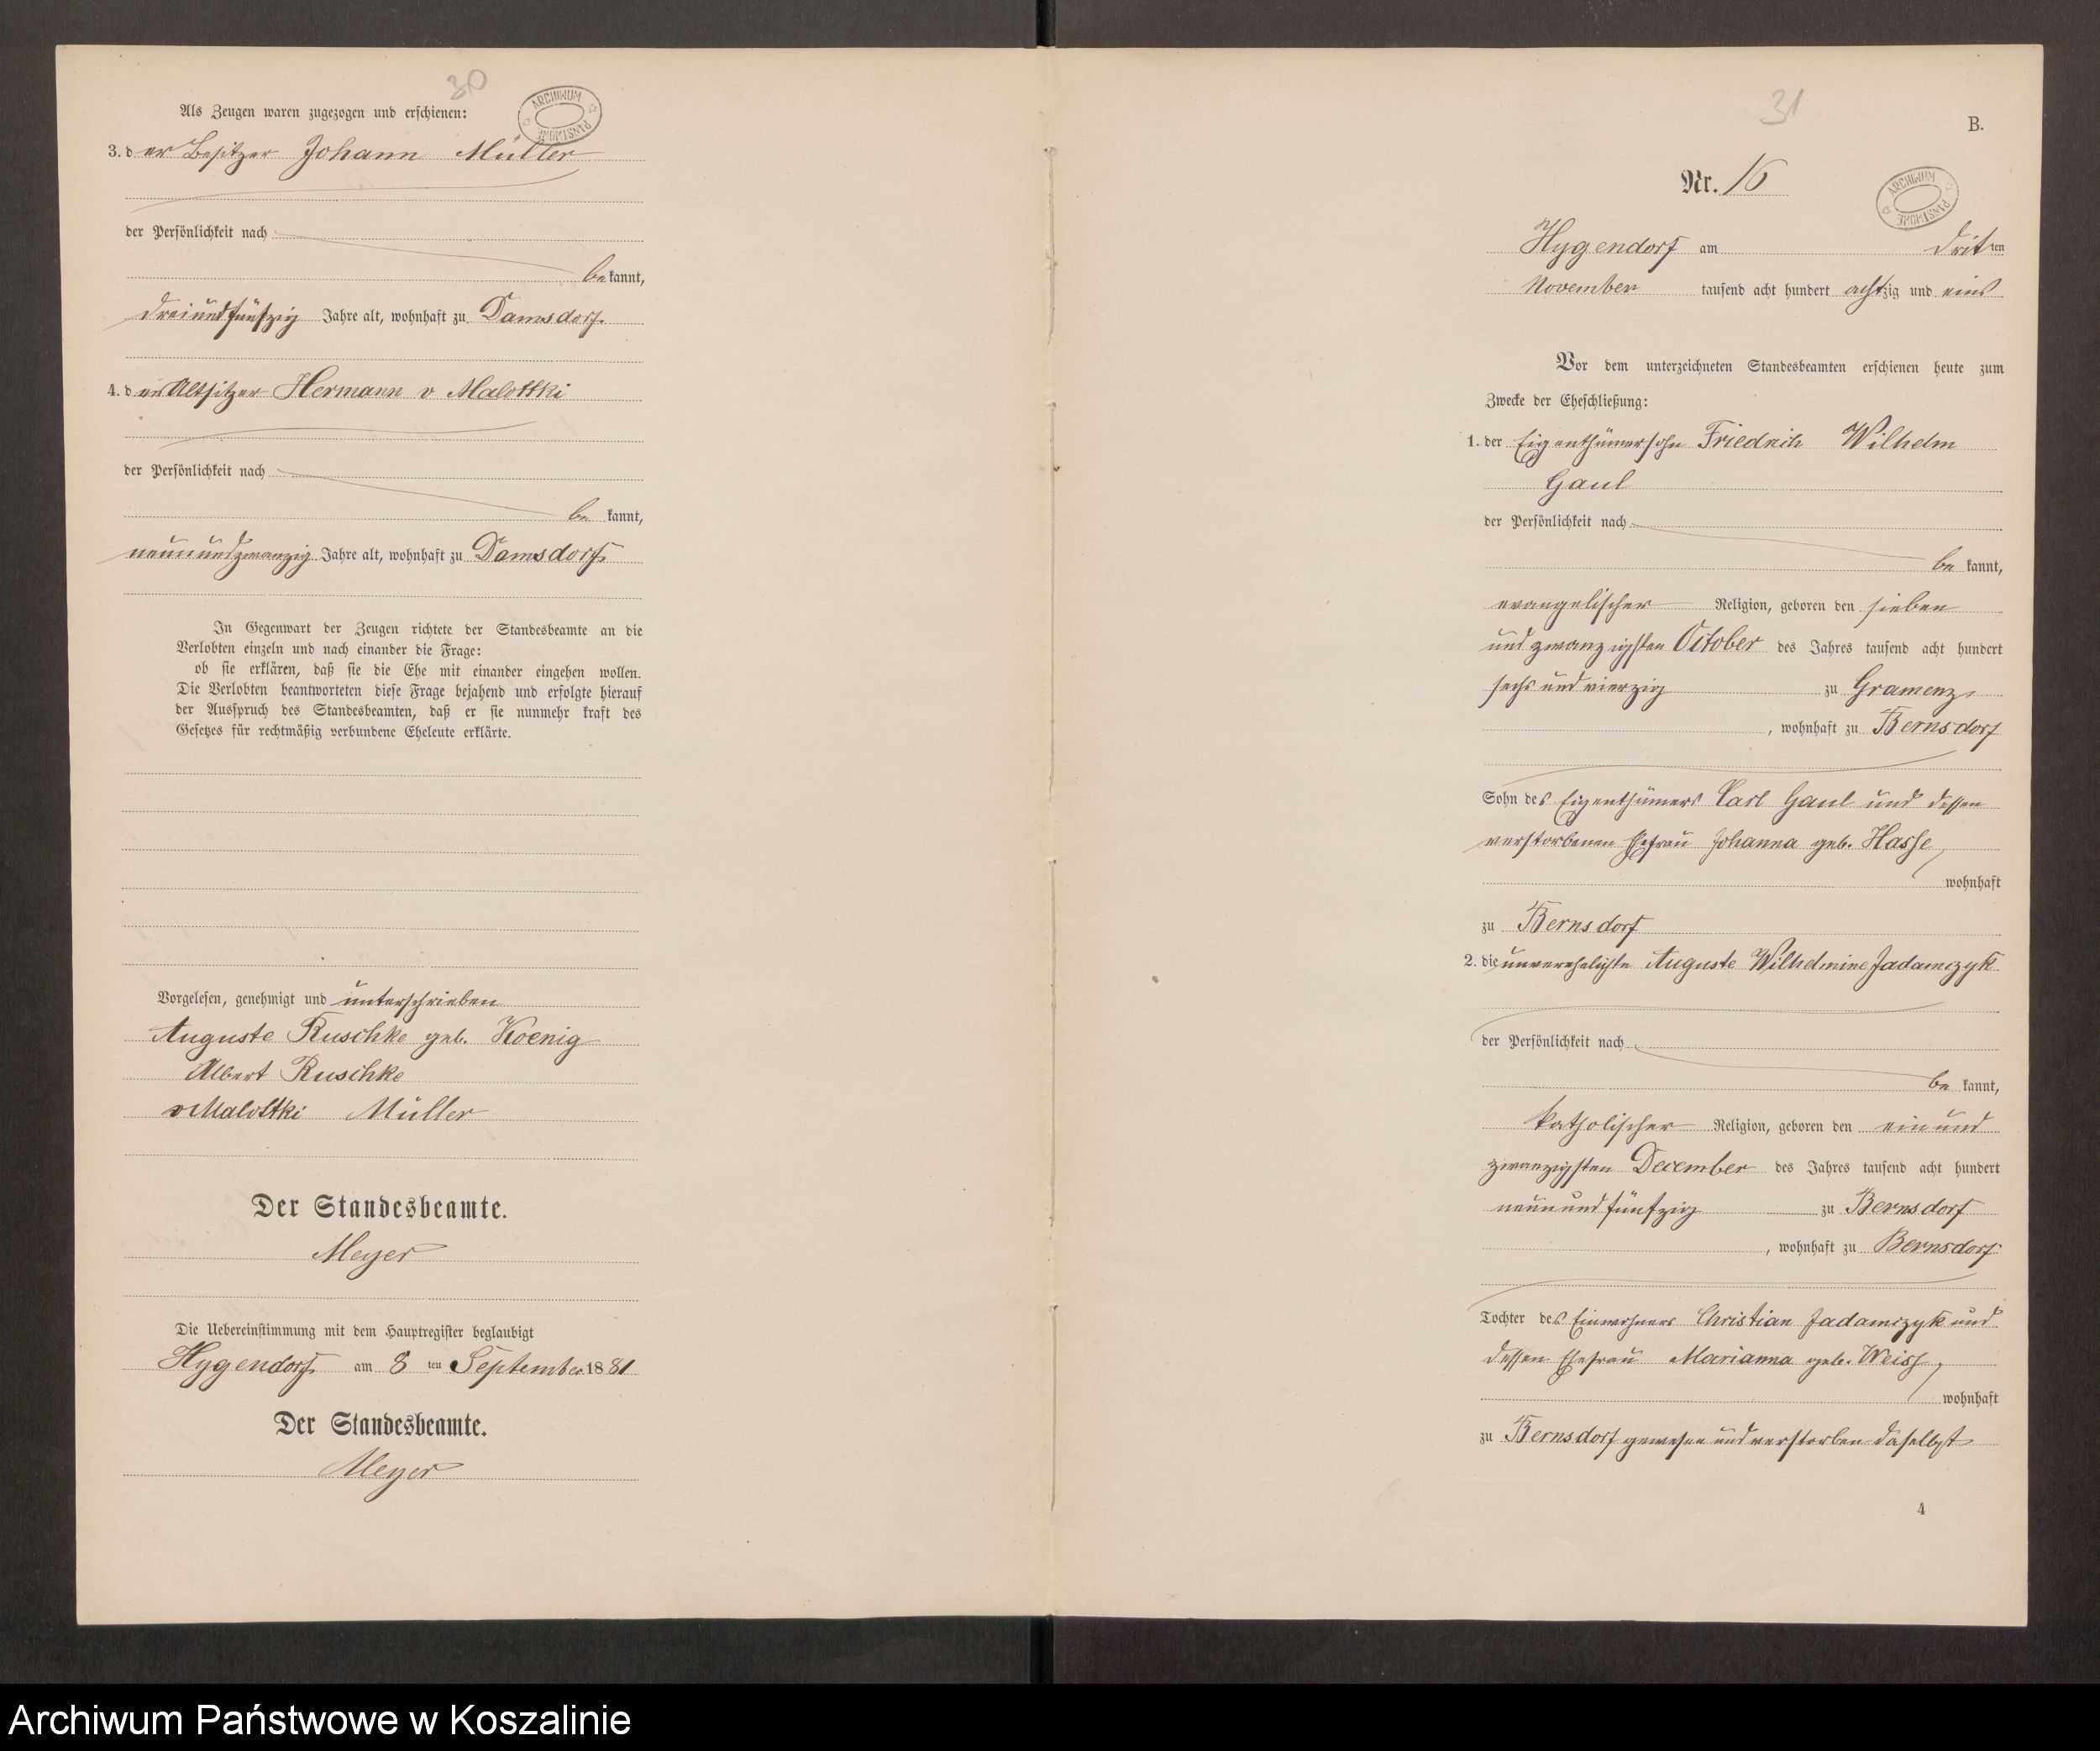 30
ARCHIWUM PAŃSTWOWE
Als Zeugen waren zugezogen und erschienen:
3. der Besitzer Johann Müller
der Persönlichkeit nach
bekannt,
dreiundfünfzig Jahre alt, wohnhaft zu Damsdorf.
4. der Altsitzer Hermann v Malottki
der Persönlichkeit nach
be kannt,
neunundzwanzig Jahre alt, wohnhaft zu Damsdorf
In Gegenwart der Zeugen richtete der Standesbeamte an die
Verlobten einzeln und nach einander die Frage:
ob sie erklären, daß sie die Ehe mit einander eingehen wollen.
Die Verlobten beantworteten diese Frage bejahend und erfolgte hierauf
der Ausspruch des Standesbeamten, daß er sie nunmehr kraft des
Gesetzes für rechtmäßig verbundene Eheleute erklärte.
Vorgelesen, genehmigt und unterschrieben
Auguste Ruschke geb. Koenig
Albert Ruschke
v Malottki Müller
Der Standesbeamte.
Meyer
Die Uebereinstimmung mit dem Hauptregister beglaubigt
Hygendorf am 8 ten September 1881
Der Standesbeamte.
Meyer
31
B.
Nr. 16
ARCHIWUM PAŃSTWOWE
Hygendorf am dritten
November tausend acht hundert achtzig und eins
Vor dem unterzeichneten Standesbeamten erschienen heute zum
Zwecke der Eheschließung:
1. der Eigenthümersohn Friedrich Wilhelm
Gaul
der Persönlichkeit nach
be kannt,
evangelischer Religion, geboren den sieben
und zwanzigsten October des Jahres tausend acht hundert
sechs und vierzig zu Gramenz,
, wohnhaft zu Bernsdorf
Sohn des Eigenthümers Carl Gaul und dessen
verstorbenen Ehefrau Johanna geb. Hasse,
wohnhaft
zu Bernsdorf
2. die unverehelichte Auguste Wilhelmine Jadamczyk
der Persönlichkeit nach
be kannt,
katholischer Religion, geboren den ein und
zwanzigsten December des Jahres tausend acht hundert
neun und fünfzig zu Bernsdorf
, wohnhaft zu Bernsdorf
Tochter des Einwohners Christian Jadamczyk und
dessen Ehefrau Marianna geb. Weiss,
wohnhaft
zu Bernsdorf gewesen und verstorben daselbst
4
Archiwum Państwowe w Koszalinie